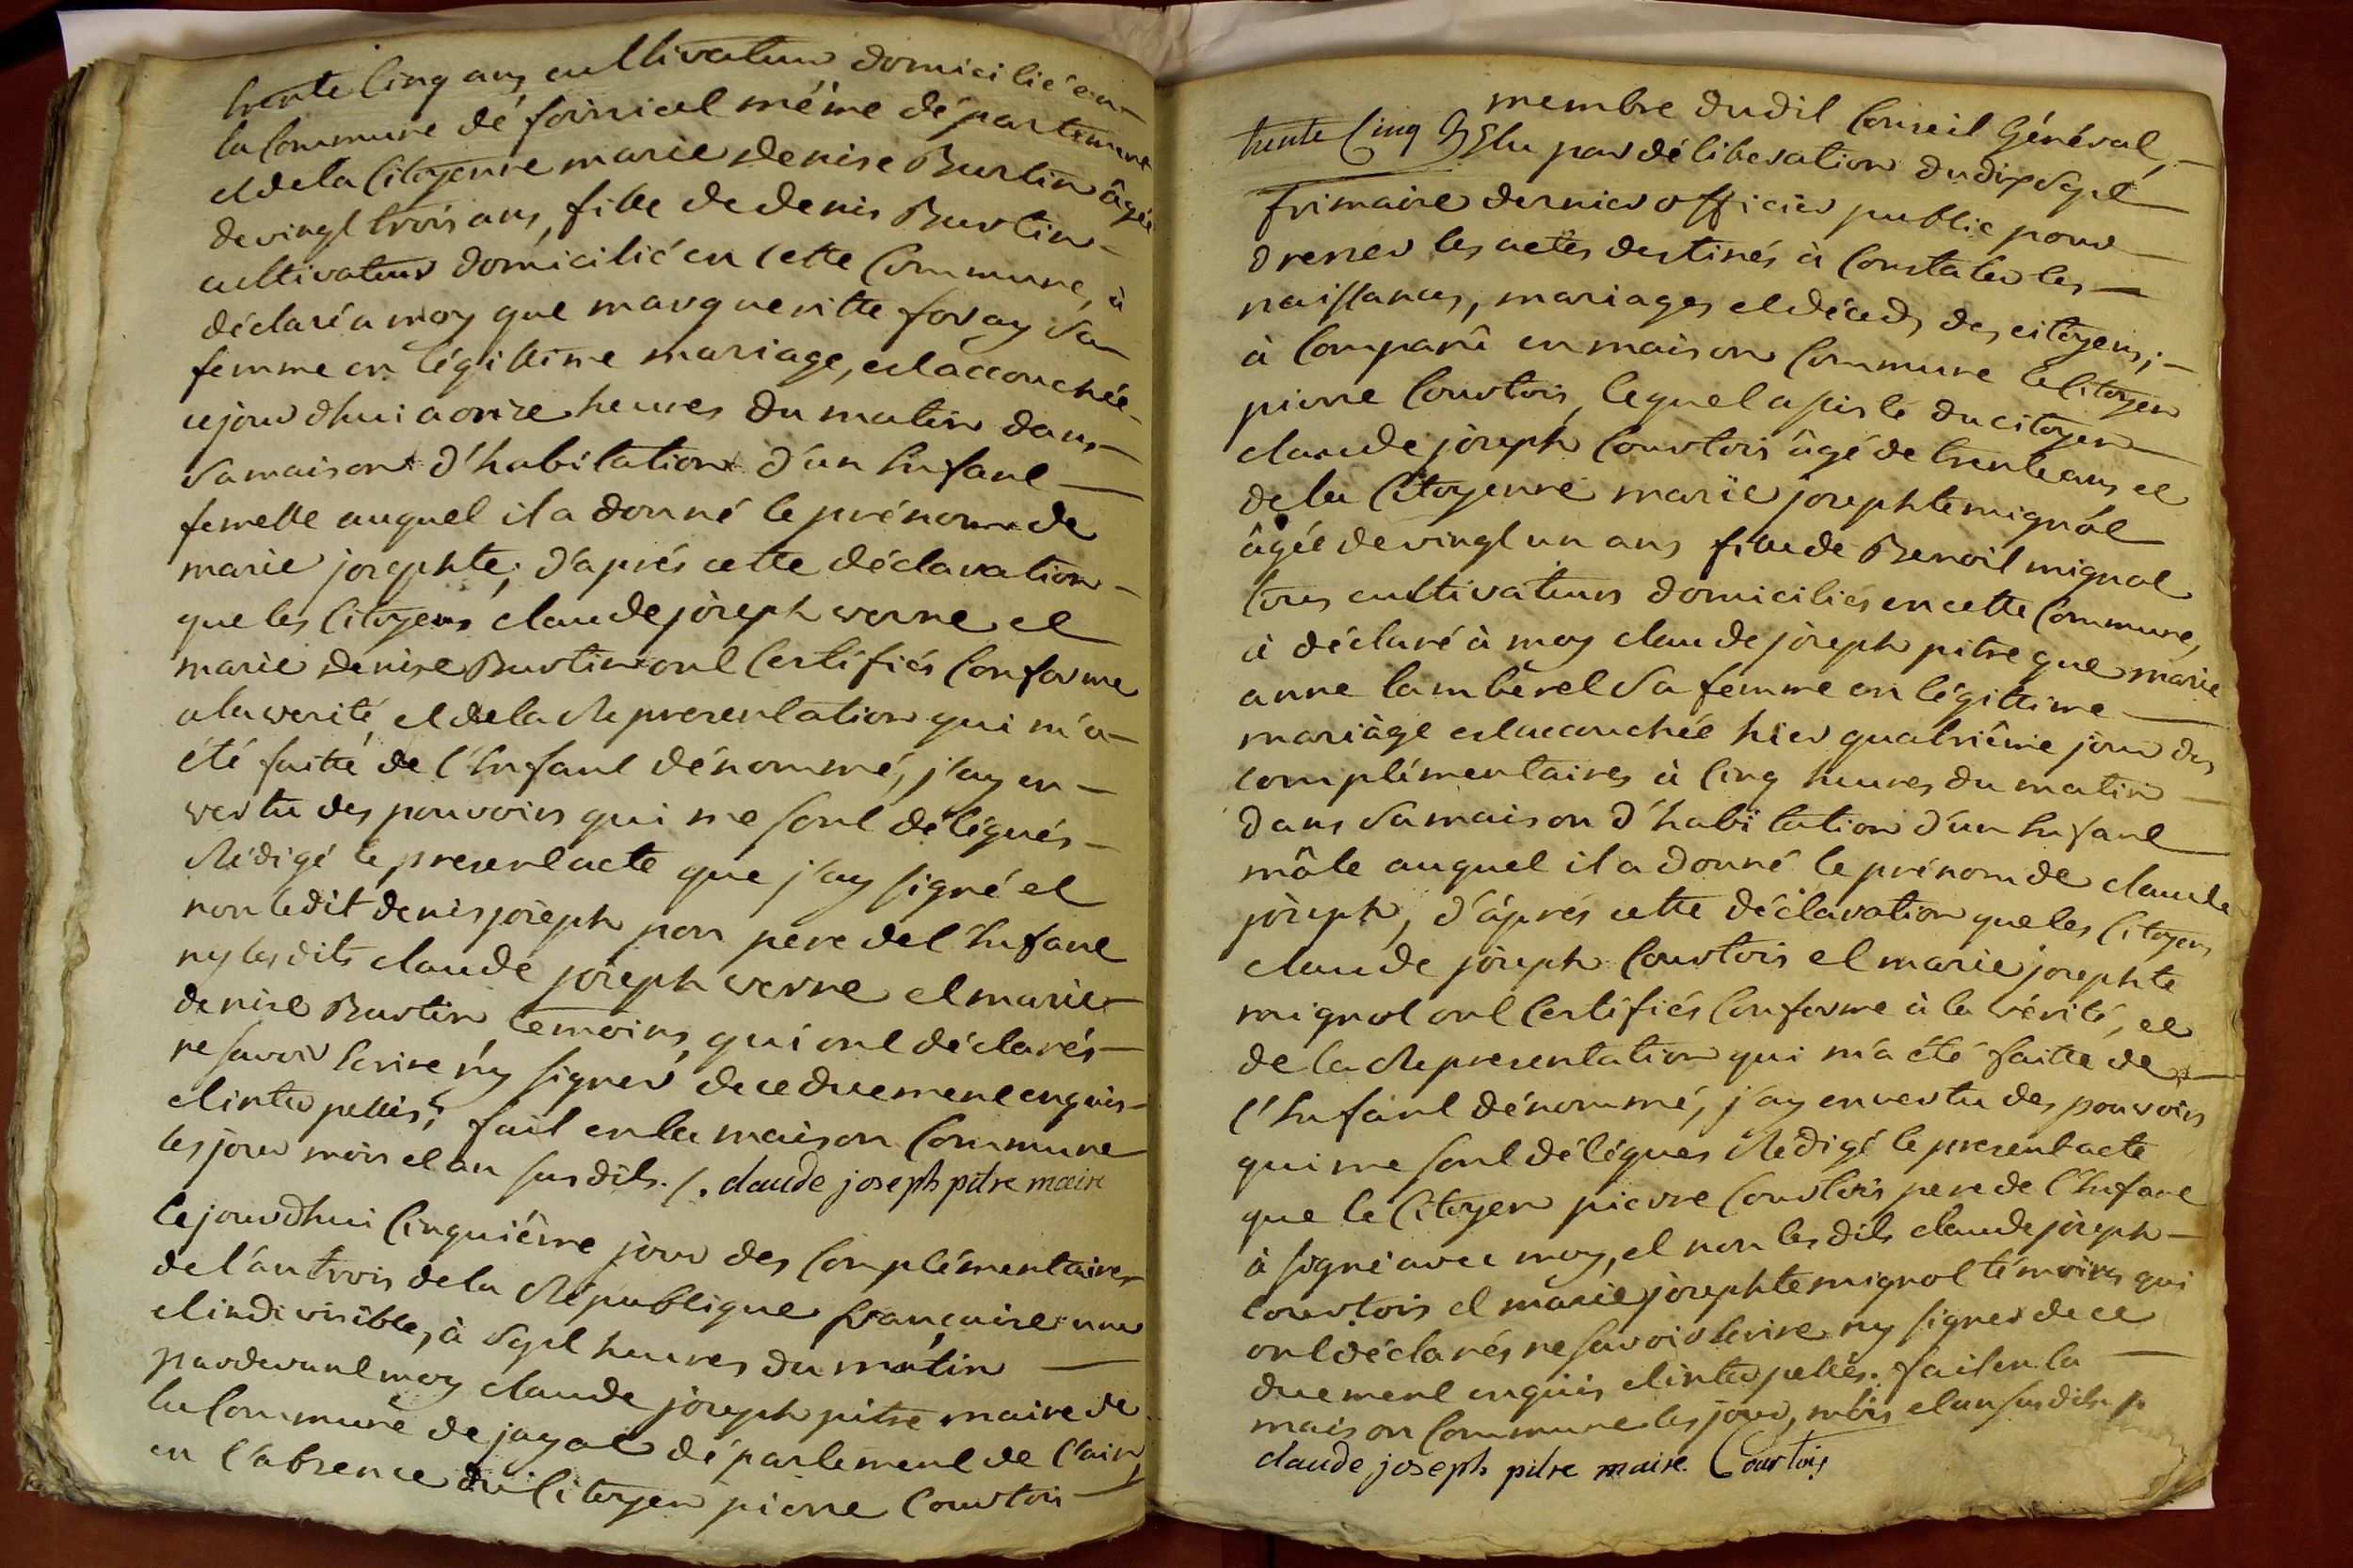 trente Cinq ans, cultivateur domicilié en
la Commune de foissiat même département
et de la Citoyenne marie denise Burtin âgée
de vingt trois ans, fille de denis Burtin
cultivateur domicilié en Cette Commune, à
déclaré a moy que margueritte foray sa
femme en légittime mariage, est accouchée
cejourdhui a onze heures du matin dans
sa maison d'habitation d'un Enfant
femelle auquel il a donné le prénom de
marie josephte; d'après cette déclaration
que les Citoyens claude joseph verne et
marie denise Burtin ont Certifiés Conforme
a la verité, et de la Representation qui m'a
été faitte de l'Enfant dénommé, j'ay en
vertu des pouvoirs qui me sont délégués
Rédigé le present acte que j'ay signé et
non ledit denis joseph pere de l'Enfant
ny lesdits claude joseph verne et marie
denise Burtin, temoins, qui ont déclarés
ne savoir Ecrire ny signer de ce duement enquis
et interpellés; fait en la maison Commune
les jour mois et an susdits. /. claude joseph pitre maire
Cejourdhui Cinquiéme jour des Complémentaires
de l'an trois de la République française une
et indivisible, à sept heures du matin
pardevant moy claude joseph pitre maire de
la Commune de jayat département de l'ain,
en l'absence du Citoyen pierre Courtois
membre dudit Conseil Général,
trente Cinq Elu par délibération du dix sept
frimaire dernier officier public pour
dresser les actes destinés à Constater les
naissances, mariages et décès des citoyens;
à Comparû en maison Commune le Citoyen
pierre Courtois, lequel assisté du citoyen
claude joseph Courtois âgé de trente ans et
de la Citoyenne marie josephte mignot
âgée de vingt un ans fille de Benoit mignot
tous cultivateurs domiciliés en cette Commune,
à déclaré à moy claude joseph pitre que marie
anne lambèrel sa femme en légittime
mariàge est accouchée hier quatrième jour des
complémentaires à Cinq heures du matin
dans sa maison d'habitation d'un Enfant
mâle auquel il a donné le prénom de claude
joseph, d'après cette déclaration que les Citoyens
claude joseph Courtois et marie josephte
mignot ont Certifiés Conforme à la vérité, et
de la Representation qui m'a été faitte de
l'Enfant dénommé, j'ay en vertu des pouvoirs
qui me sont délégués Rédigé le present acte
que le Citoyen pierre Courtois pere de l'Enfant
à signé avec moy, et non lesdits claude joseph
Courtois et marie josephte mignot témoins qui
ont déclarés ne savoir Ecrire ny signer de ce
duement enquis et interpellés. fait en la
maison Commune les jour, mois et an susdits.
claude joseph pitre maire. Courtois